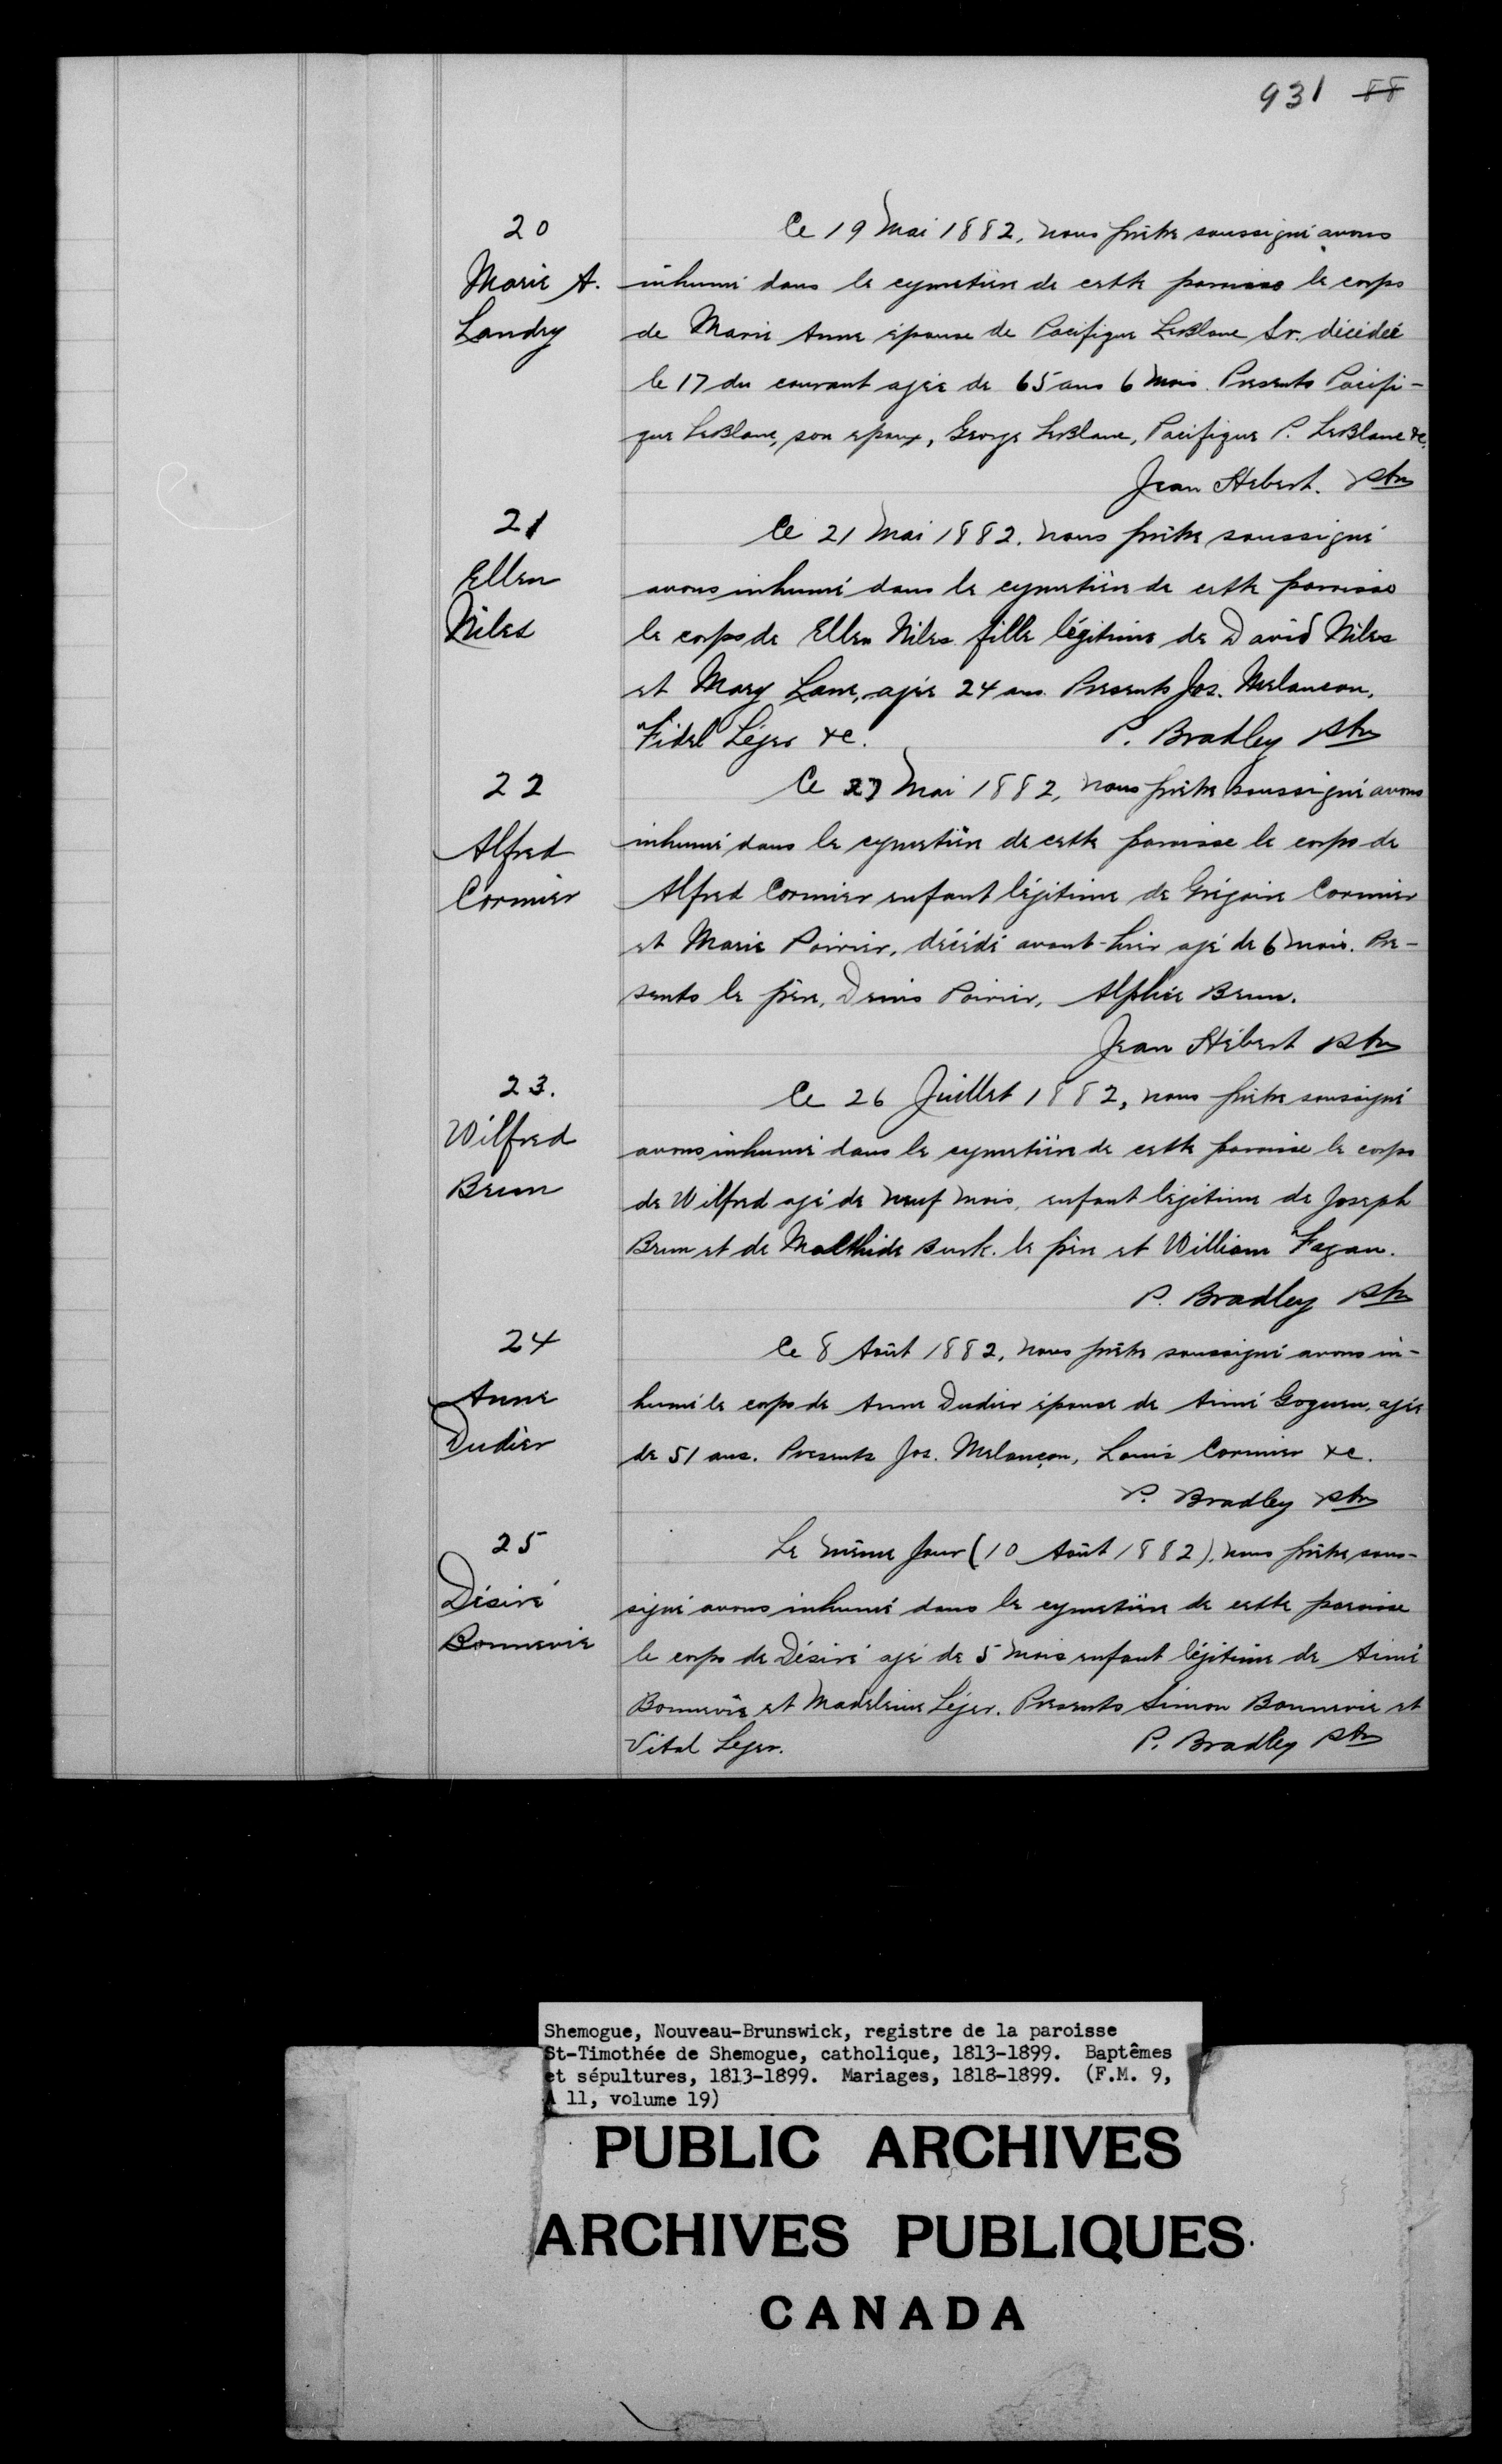 931 88
20
Marie A.
Landry
Ce 19 Mai 1882, nous prêtre soussigné avons
inhumé dans le cymetière de cette paroisse le corps
de Marie Anne épouse de Pacifique LeBlanc Sr. décédée
le 17 du courant agée de 65 ans 6 mois. Presents Pacifi-
que LeBlanc, son epoux, George LeBlanc, Pacifique P. LeBlanc &c.
Jean Hebert. Ptre
21
Ellen
Niles
Ce 21 Mai 1882. nous prêtre soussigné
avons inhumé dans le cymetière de cette paroisse
le corps de Ellen Niles fille légitime de David Niles
et Mary Lane, agée 24 ans. Presents Jos. Melancon,
Fidel Léger &c. P. Bradley Ptre
22
Alfred
Cormier
Ce 27 Mai 1882, nous prêtre soussigné avons
inhumé dans le cymetière de cette paroisse le corps de
Alfred Cormier enfant légitime de Grégoire Cormier
et Marie Poirier, décédé avant-hier agé de 6 mois. Pre-
sents le père, Denis Poirier, Alphée Brun.
Jean Hébert Ptre
23.
Wilfred
Brun
Ce 26 Juillet 1882, nous prêtre soussigné
avons inhumé dans le cymetière de cette paroisse le corps
de Wilfred agé de neuf mois, enfant légitime de Joseph
Brun et de Malthide Burk. le père et William Fagan.
P. Bradley Ptre
24
Anne
Dudier
Ce 8 Août 1882, nous prêtre soussigné avons in-
humé le corps de Anne Dudier épouse de Aimé Goguen, agée
de 51 ans. Presents Jos. Melançon, Louis Cormier &c.
P. Bradley Ptre
25
Désiré
Bonnevie
Le même jour (10 Août 1882), nous prêtre sous-
signé avons inhumé dans le cymetière de cette paroisse
le corps de Désiré agé de 5 mois enfant légitime de Aimé
Bonnevie et Madeleine Léger. Presents Simon Bonnevie et
Vital Leger. P. Bradley Ptre
Shemogue, Nouveau-Brunswick, registre de la paroisse
St-Timothée de Shemogue, catholique, 1813-1899. Baptêmes
et sépultures, 1813-1899. Mariages, 1818-1899. (F.M. 9,
A 11, volume 19)
PUBLIC ARCHIVES
ARCHIVES PUBLIQUES
CANADA